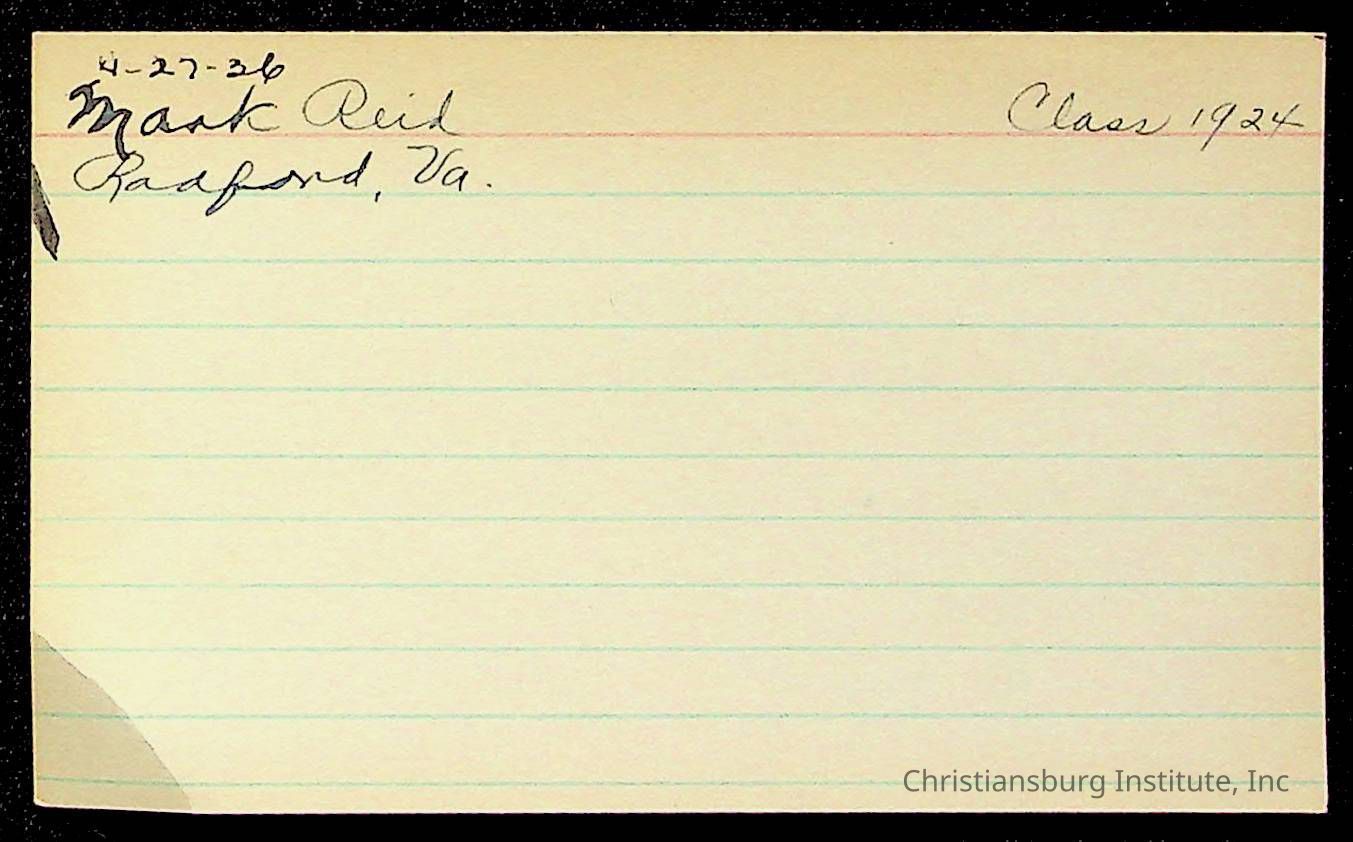 4-27-36
Mark Reid
Class 1924
Radford, Va.
Christiansburg Institute, Inc